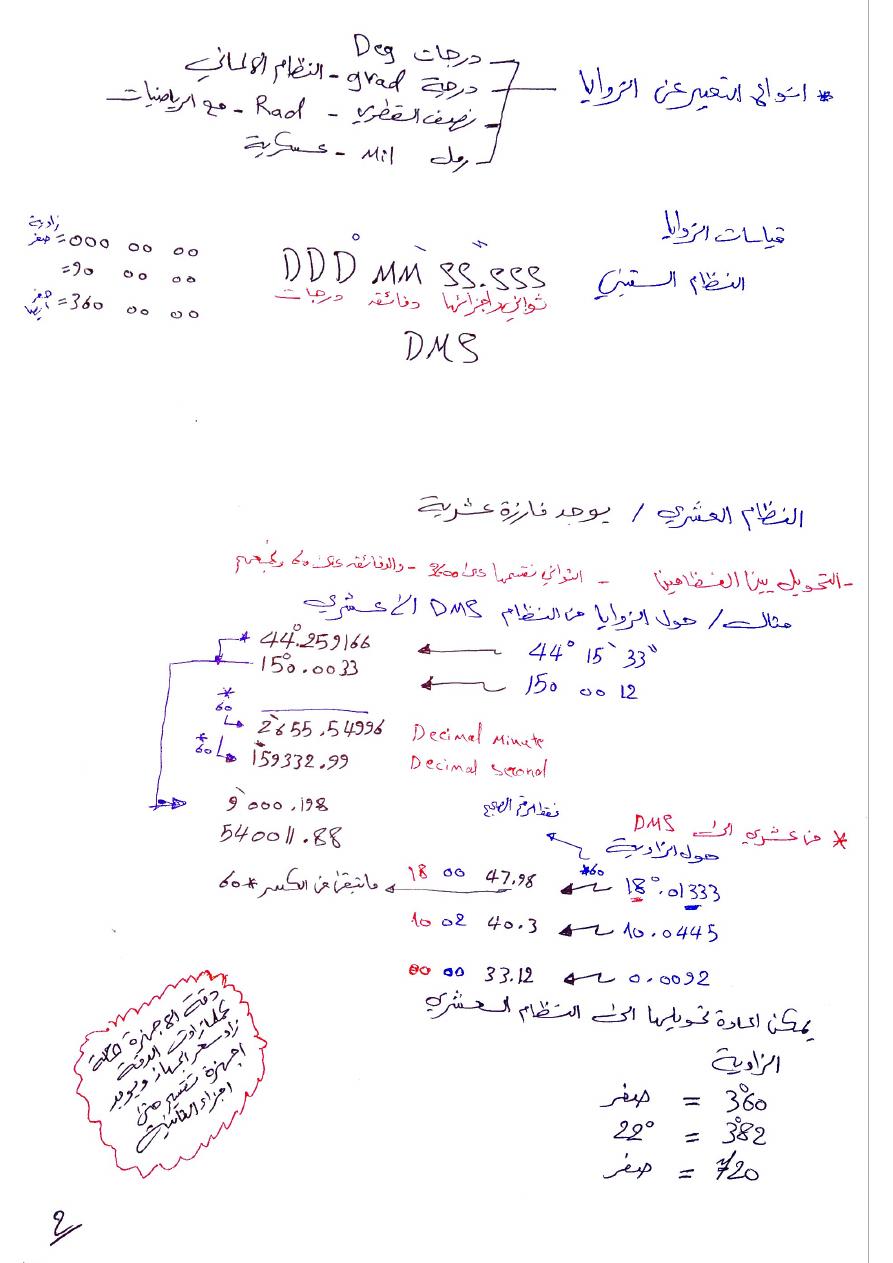 * انواع التعبير عن الزوايا
درجات Deg
درجة grad - النظام الالماني
نصف القطري - Rad - مع الرياضيات
مل Mil - عسكرية
قياسات الزوايا
النظام الستيني
DDD° MM` SS.SSS``
درجات دقائق ثواني واجزائها
DMS
000 00 00 = زاوية صفر
90 00 00 =
360 00 00 = صفر ايضا
النظام العشري / يوجد فارزة عشرية
- التحويل بين النظامين - الثواني نقسمها على 3600 - والدقائق على 60 ونجمعهم
مثال / حول الزوايا من النظام DMS الى عشري
44° 15` 33`` ← 44°.259166
150 00 12 ← 150°.0033
*60
2655.54996 Decimal Minute
*60
159332.99 Decimal second
9000.198
540011.88
* من عشري الى DMS
حول الزاوية
فقط الرقم الصحيح
18°.01333 ← *60 18 00 47.98 ← ماتبقى من الكسر * 60
10.0445 ← 10 02 40.3
0.0092 ← 00 00 33.12
يمكن اعادة تحويلها الى النظام العشري
الزاوية
360° = صفر
382° = 22°
720 = صفر
دقة الاجهزة
كلما زادت الدقة
زاد سعر الجهاز ويوجد
اجهزة تقيس حتى
اجزاء الثانية
2